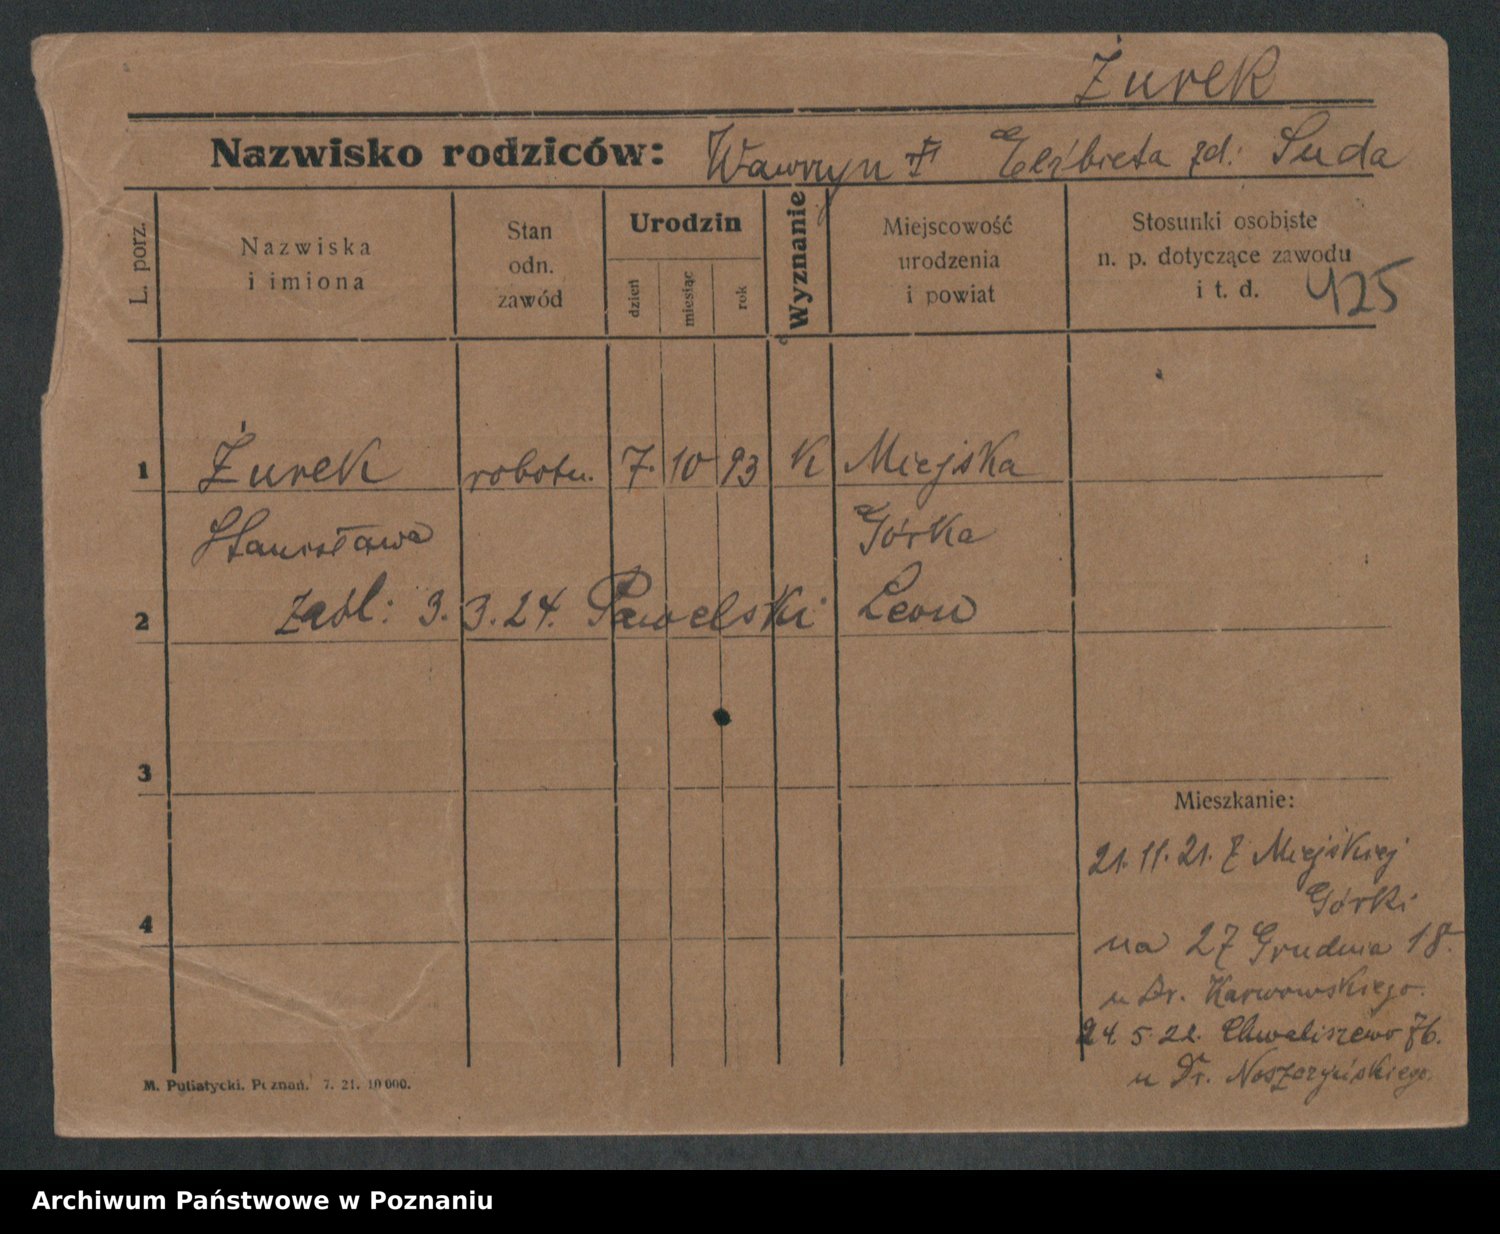 Żurek
Nazwisko rodziców: Wawrzyn † Elżbieta zd: Suda
L. porz.
Nazwiska i imiona
Stan odn. zawód
Urodzin
dzień
miesiąc
rok
Wyznanie
Miejscowość urodzenia i powiat
Stosunki osobiste n. p. dotyczące zawodu i t. d.
425
1 Żurek robotn. 7. 10 93 K Miejska
Stanisława Górka
2 zaśl: 3.3.24. Pawelski Leon
3
Mieszkanie:
21.11.21. z Miejskiej
Górki
4
na 27 Grudnia 18.
u Dr. Karwowskiego.
24.5.22. Chwaliszewo 76.
u Dr. Noszczyńskiego.
M. Putiatycki. Poznań. 7. 21. 10000.
Archiwum Państwowe w Poznaniu